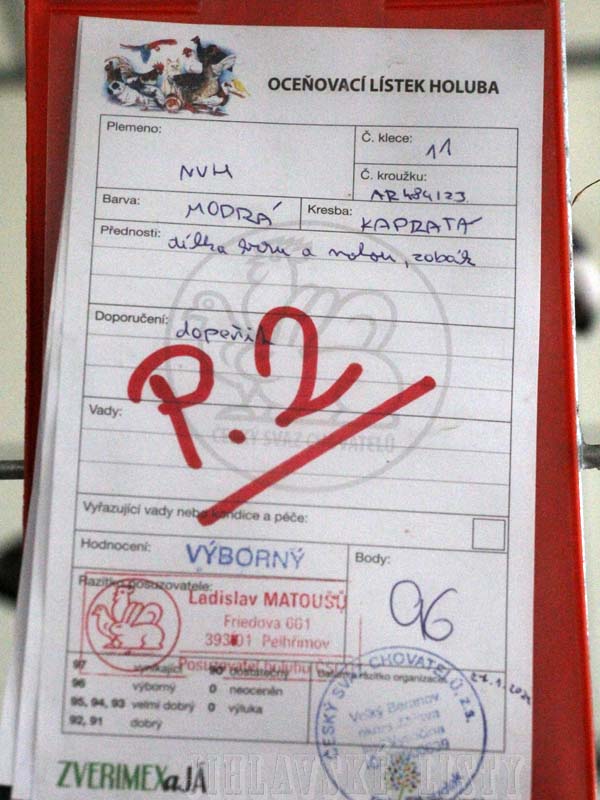 OCEŇOVACÍ LÍSTEK HOLUBA
Plemeno:
NVH
Č. klece: 11
Č. kroužku:
AR484123
Barva: MODRÁ
Kresba: KAPRATÁ
Přednosti: délka a nohou, zobák
Doporučení: dopeřit
P.2
ČESKÝ SVAZ CHOVATELŮ
Vady:
Vyřazující vady nebo kondice a péče:
Hodnocení: VÝBORNÝ
Body:
96
Razítko posuzovatele:
Ladislav MATOUŠŮ
Friedova 661
393 01 Pelhřimov
Posuzovatel holubů
97 vynikající 90 dostatečný
96 výborný 0 neoceněn
95, 94, 93 velmi dobrý 0 výluka
92, 91 dobrý
razítko organizace
ČESKÝ SVAZ CHOVATELŮ, z.s.
Velký Beranov
ZVERIMEXaJÁ
JIHLAVSKÉ LISTY